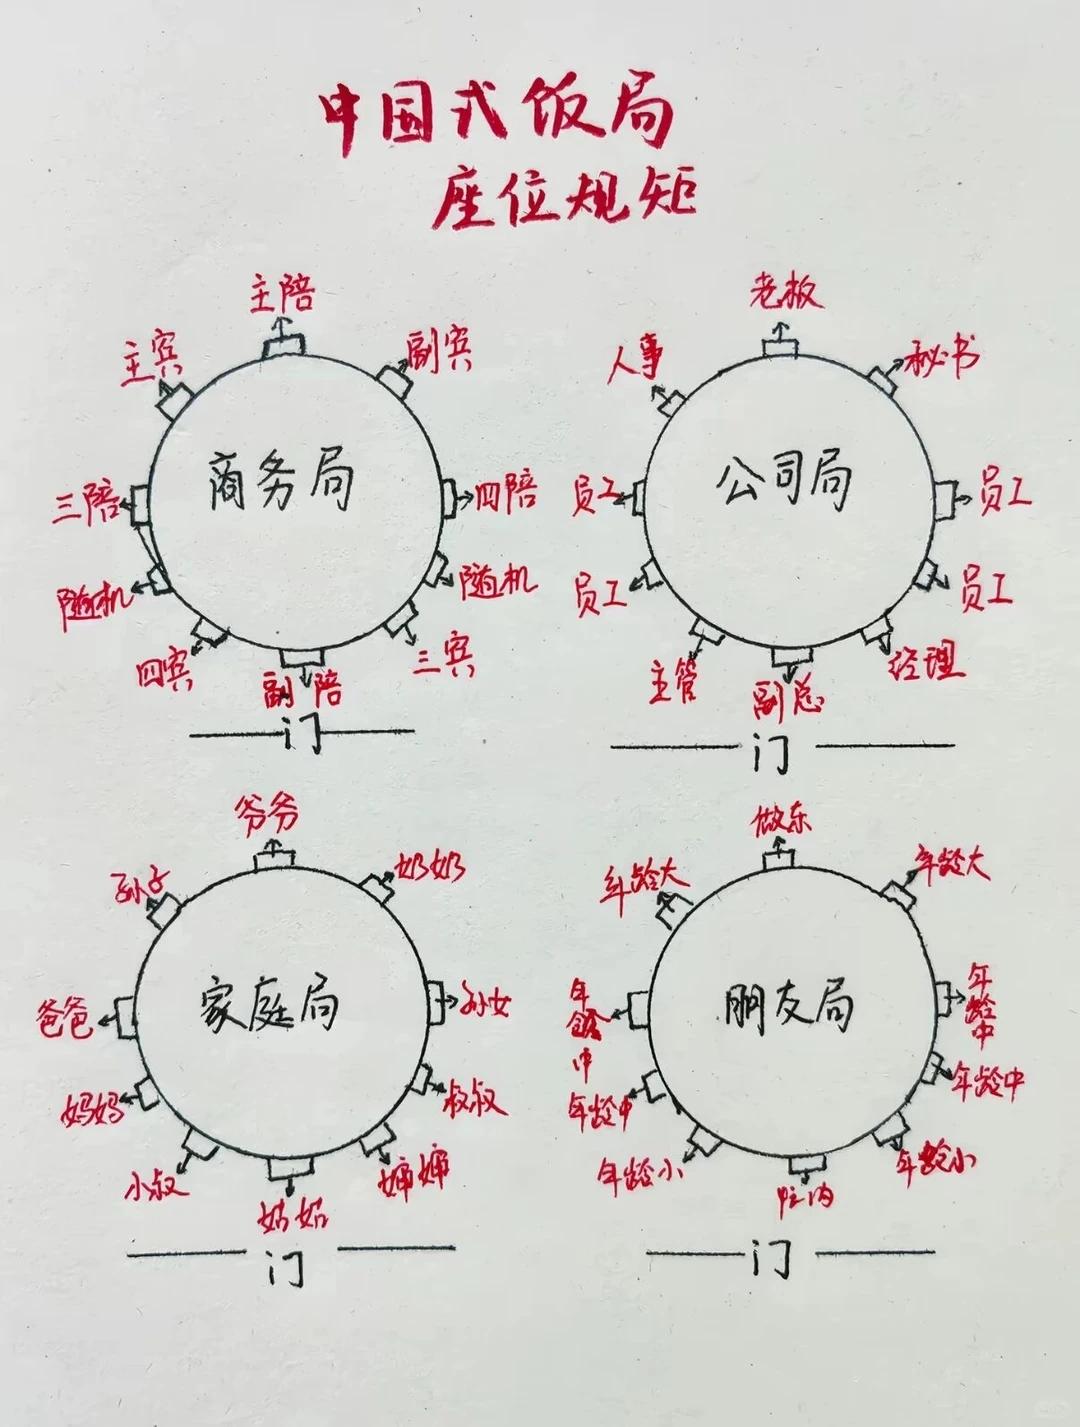 中国式饭局
座位规矩
主陪
主宾
副宾
商务局
三陪
四陪
随机
随机
四宾
三宾
副陪
门
老板
人事
秘书
公司局
员工
员工
员工
员工
主管
经理
副总
门
爷爷
孙子
奶奶
家庭局
爸爸
孙女
妈妈
叔叔
小叔
婶婶
姑姑
门
做东
年龄大
年龄大
朋友局
年龄中
年龄中
年龄中
年龄中
年龄小
年龄小
门